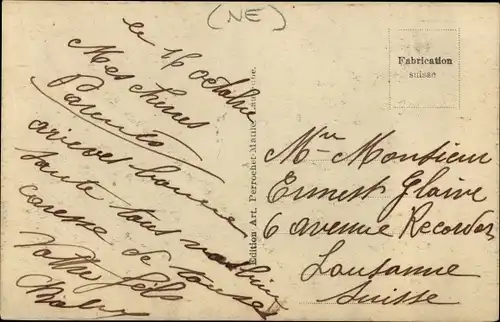 (NE)
le 16 octobre
Mes chers
Parents
arrivés bonne
santé tous
caresse de tous
Votre fils
Edition Art. Perrochet-Matile, Lausanne.
Fabrication
suisse
Mr Monsieur
Ernest Glaire
6 avenue Recordon
Lausanne
Suisse